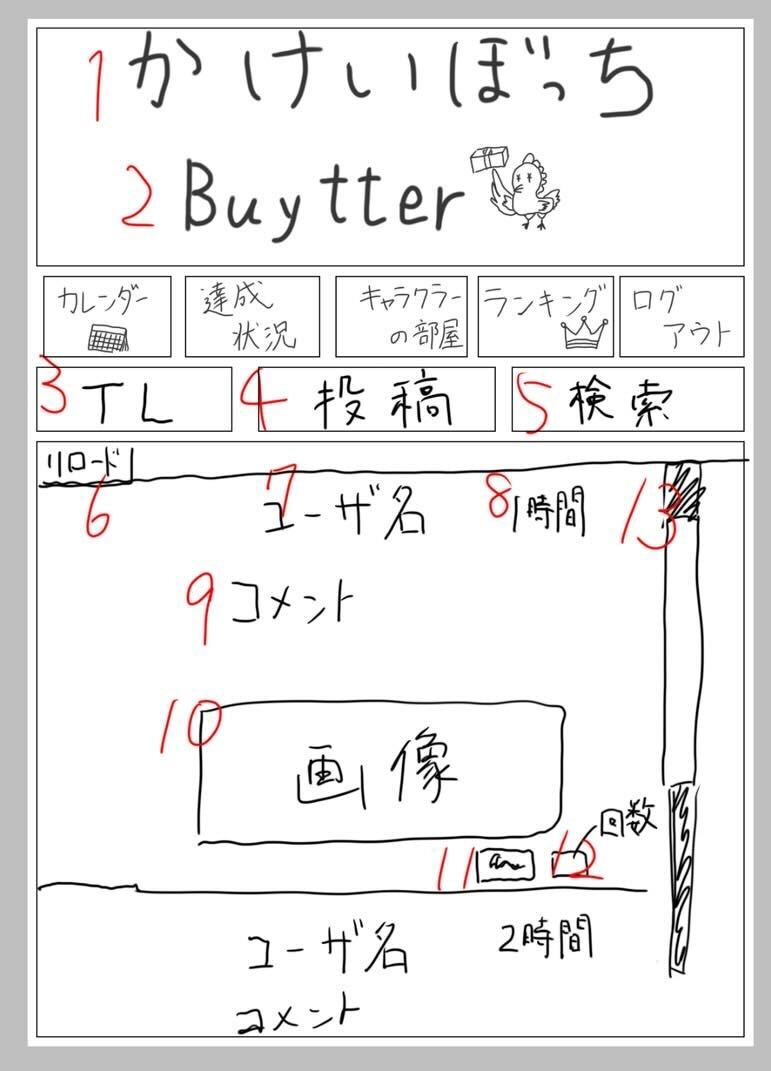 1 かけいぼっち
2 Buytter
カレンダー
達成
状況
キャラクター
の部屋
ランキング
ログ
アウト
3 TL
4 投稿
5 検索
リロード
6
7 ユーザ名
8 1時間
13
9 コメント
10
画像
回数
11
12
ユーザ名 2時間
コメント